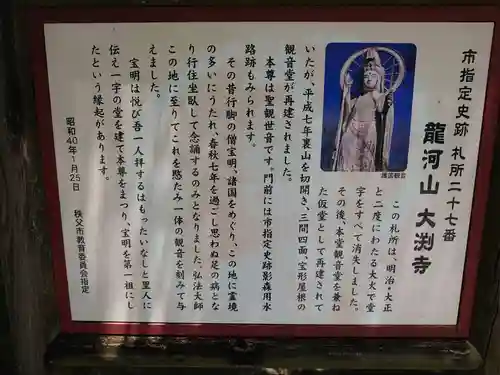 市指定史跡 札所二十七番
龍河山 大渕寺
この札所は、明治・大正
と二度にわたる大火で堂
宇をすべて消失しました。
その後、本堂観音堂を兼ね
た仮堂として再建されて
護国観音
いたが、平成七年裏山を切開き、三間四面、宝形屋根の
観音堂が再建されました。
本尊は聖観世音です。門前には市指定史跡影森用水
路跡もみられます。
その昔行脚の僧宝明、諸国をめぐり、この地に霊境
の多いにうたれ、春秋七年を過ごし思わぬ足の病とな
り行住坐臥して念誦するのみとなりました。弘法大師
この地に至りてこれを愍たみ一体の観音を刻みて与
えました。
宝明は悦び吾一人拝するはもったいなしと里人に
伝え一宇の堂を建て本尊をまつり、宝明を第一祖にし
たという縁起があります。
昭和40年1月25日
秩父市教育委員会指定